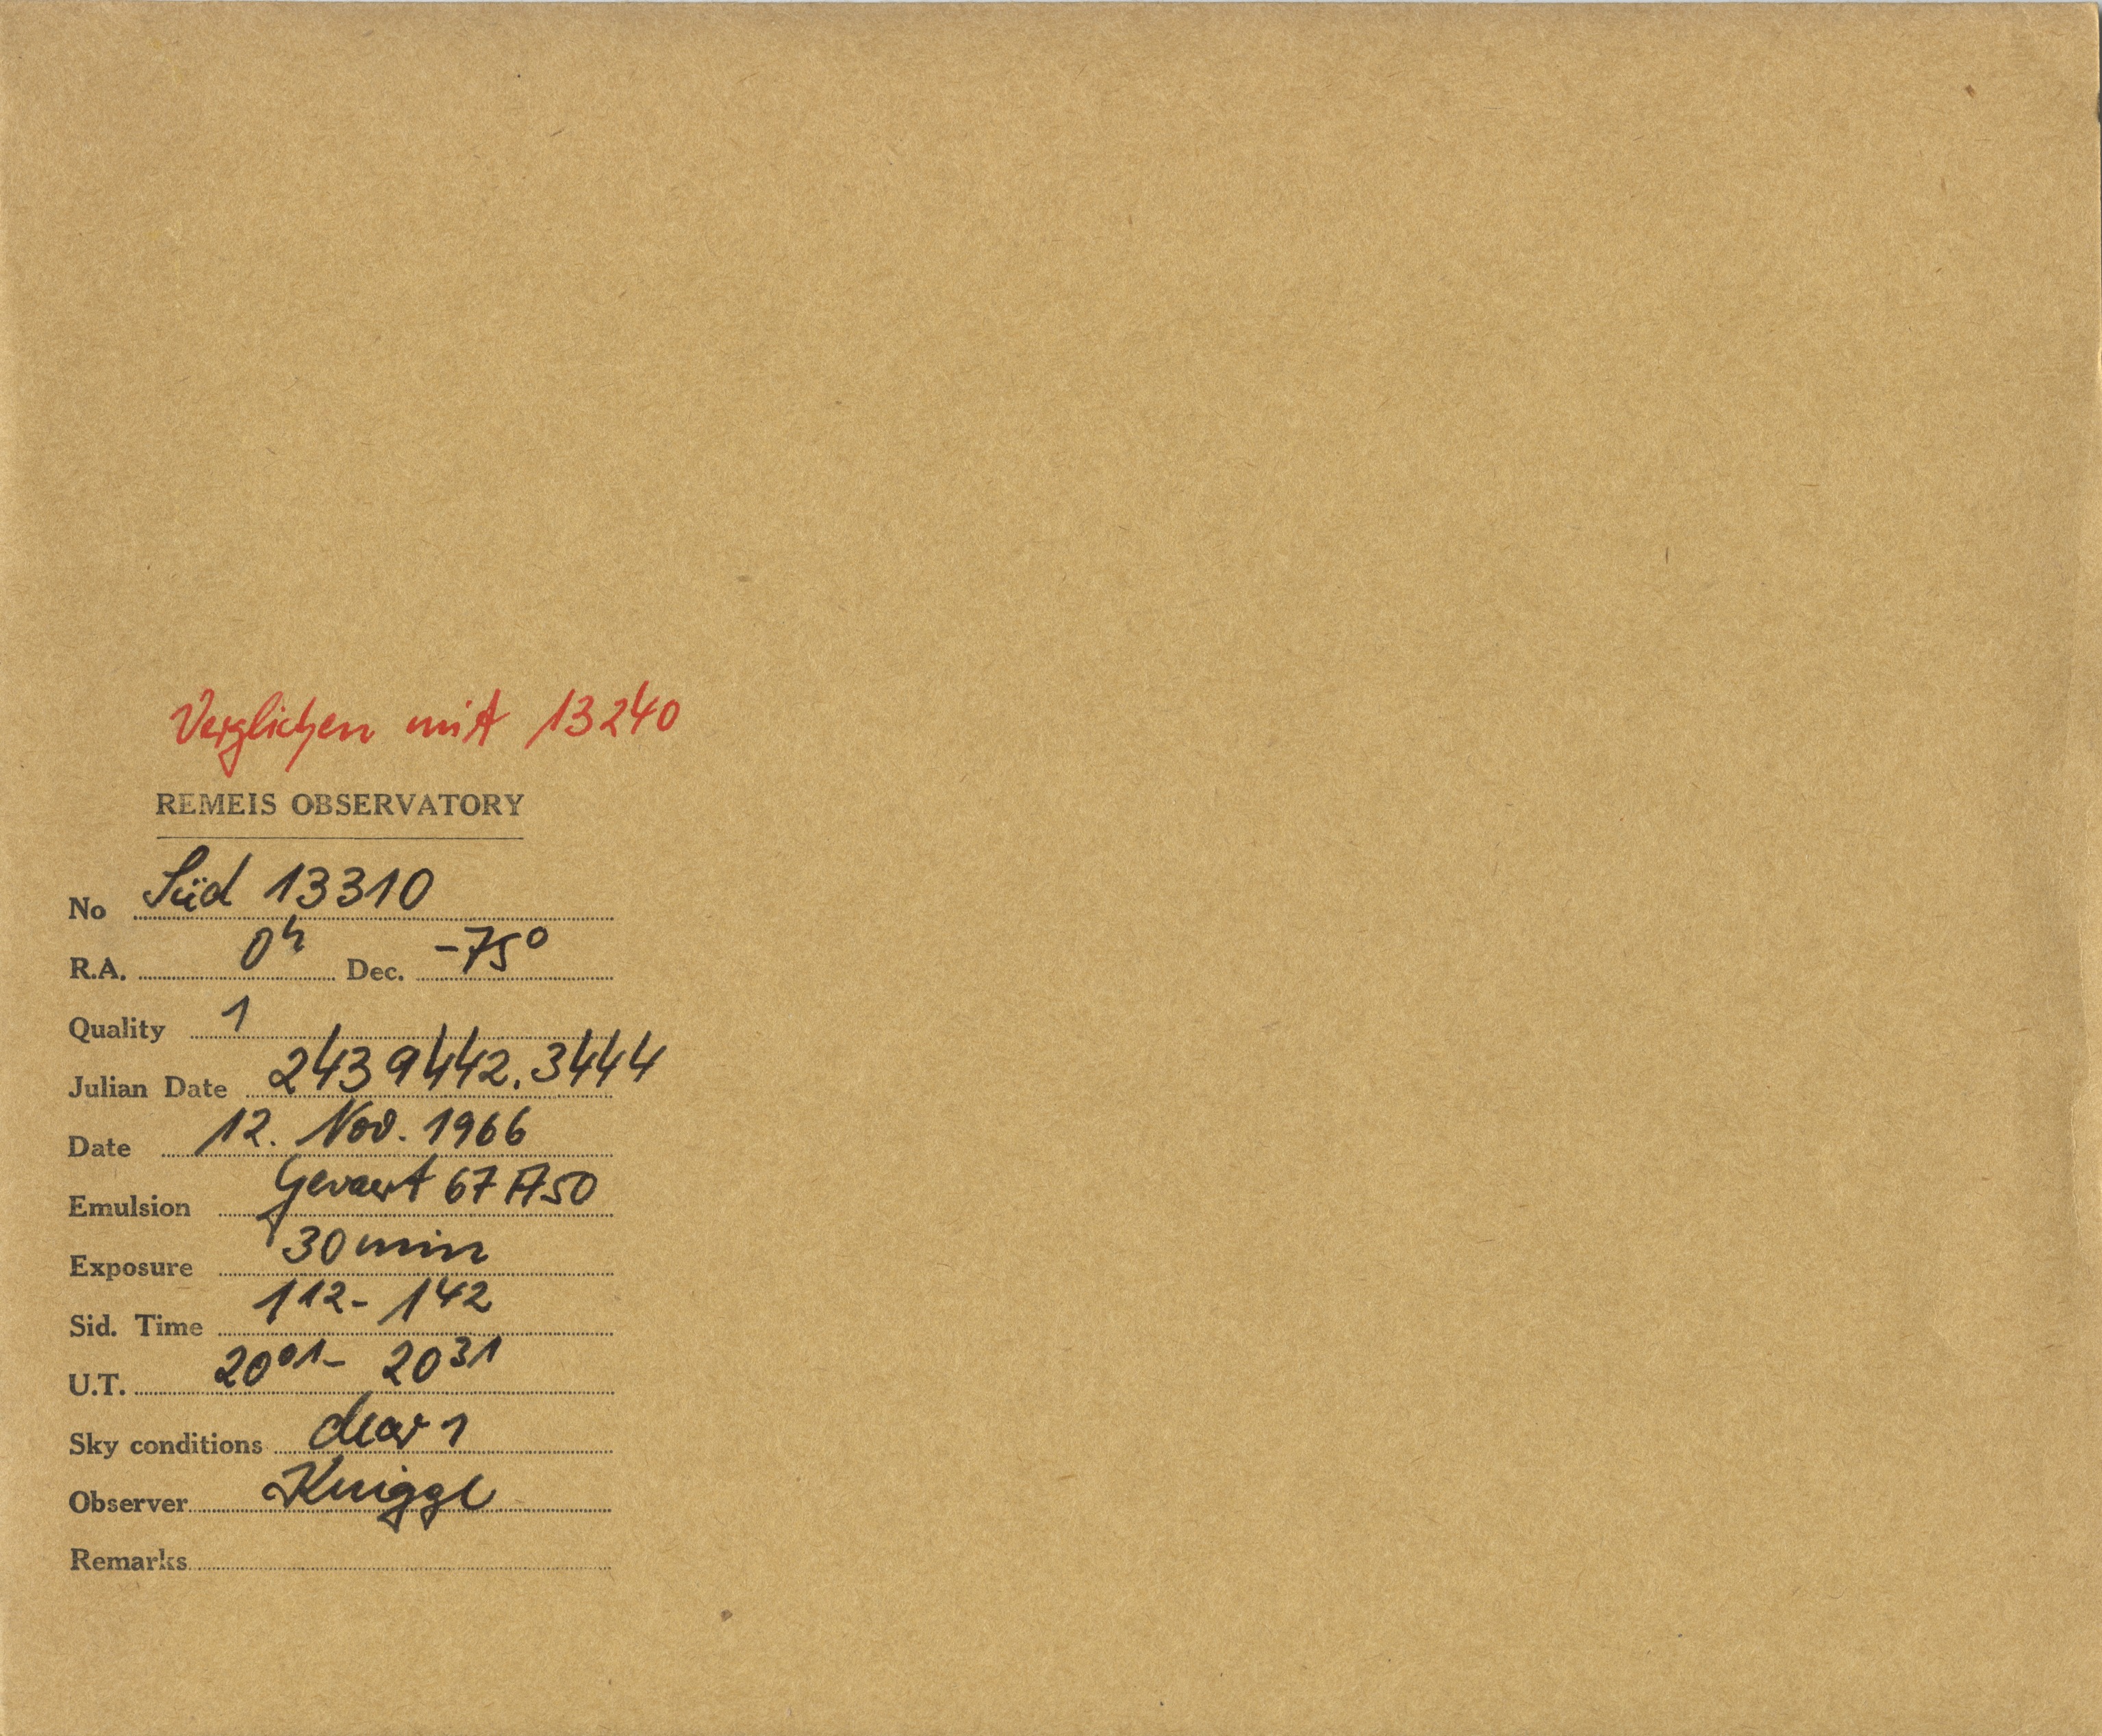 Verglichen mit 13240
REMEIS OBSERVATORY
No Süd 13310
R.A. 0h Dec. -75°
Quality 1
Julian Date 2439442.3444
Date 12. Nov. 1966
Emulsion Gevaert 67A50
Exposure 30min
Sid. Time 1 12 - 1 42
U.T. 20 01 - 20 31
Sky conditions clear 1
Observer Knigge
Remarks